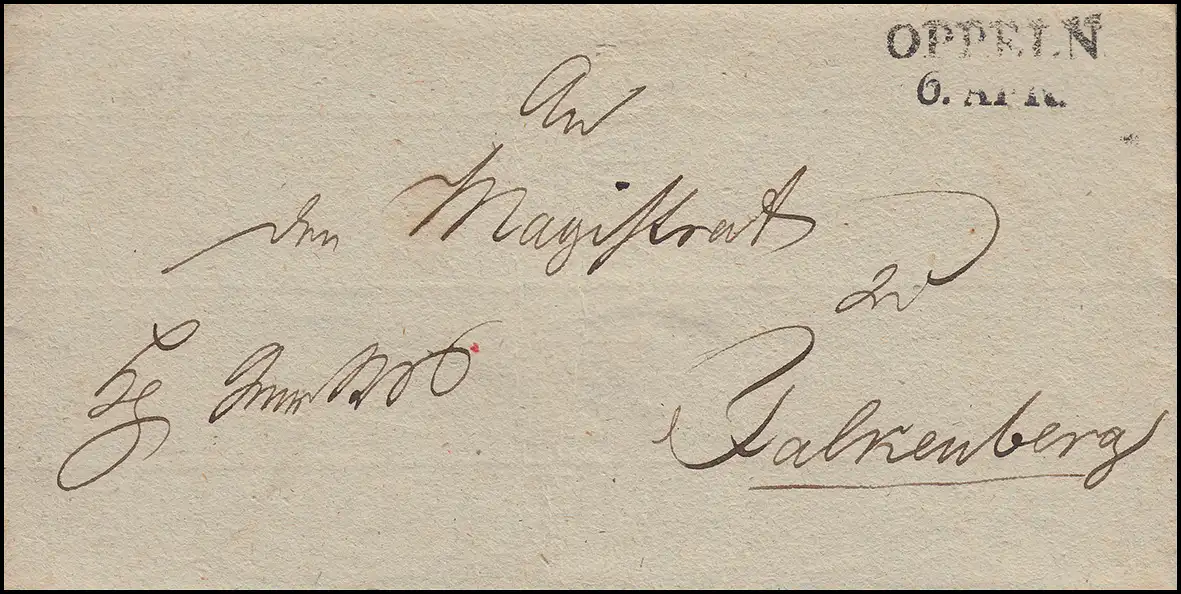 OPPELN
6. APR.
An
den Magistrat
zu
Falkenberg